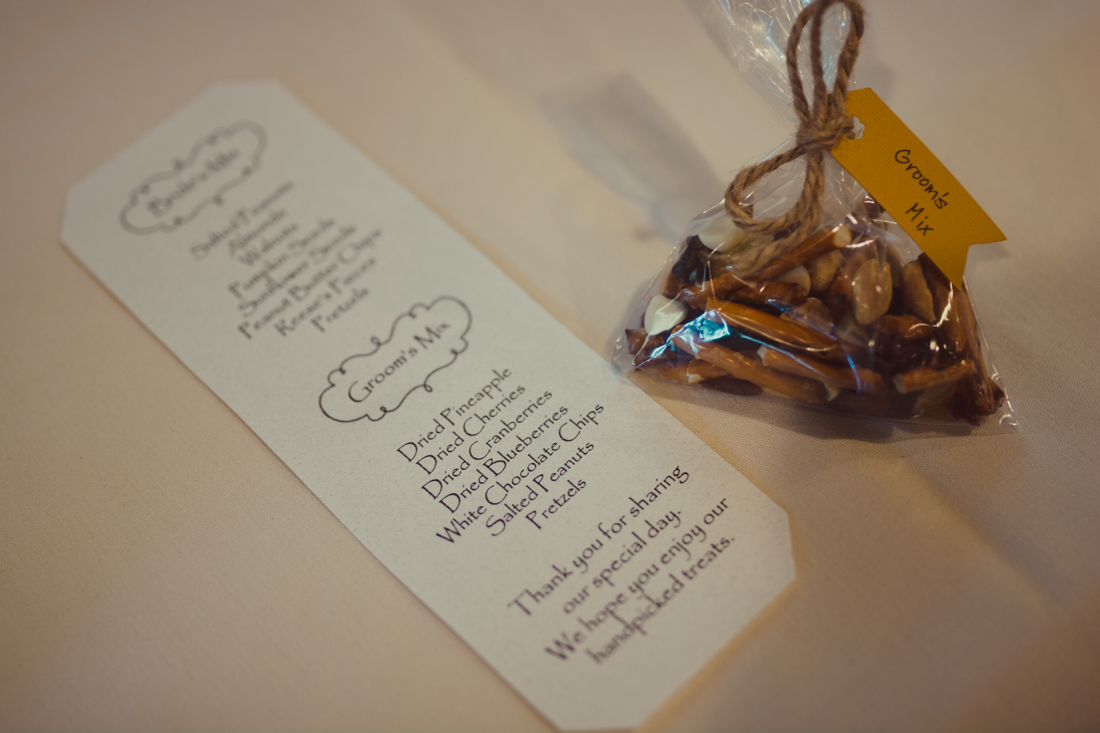 Bride's Mix
Salted Peanuts
Almonds
Walnuts
Pumpkin Seeds
Sunflower Seeds
Peanut Butter Chips
Reese's Pieces
Pretzels
Groom's Mix
Dried Pineapple
Dried Cherries
Dried Cranberries
Dried Blueberries
White Chocolate Chips
Salted Peanuts
Pretzels
Thank you for sharing
our special day.
We hope you enjoy our
handpicked treats.
Groom's
Mix